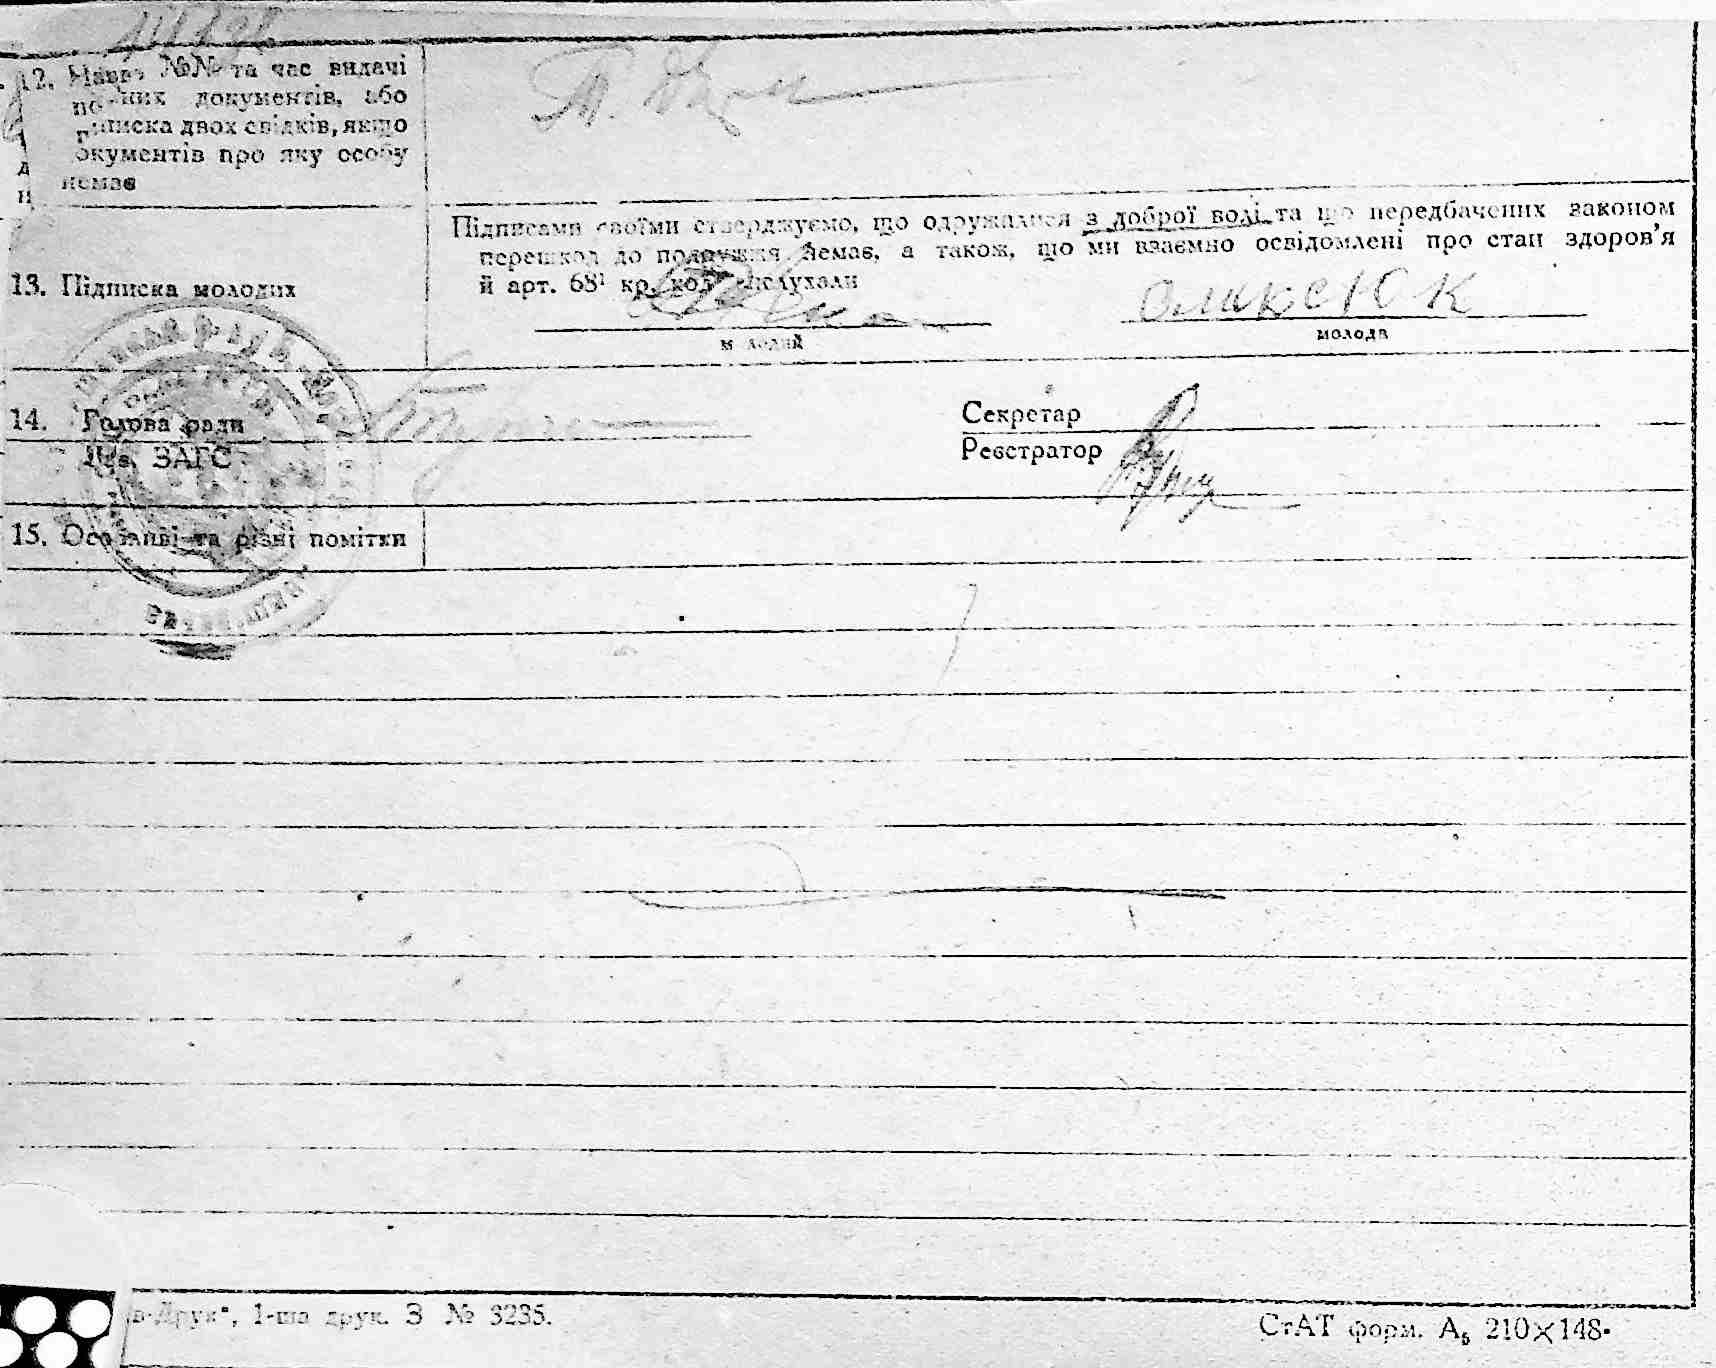 12. Назва №№ та час видачі
документів, або
підписка двох свідків, якщо
документів про яку особу
немає
Підписами своїми стверджуємо, що одружалися з доброї волі та що передбачених законом
перешкод до подружжя немає, а також, що ми взаємно освідомлені про стан здоров'я
й арт. 68¹ кр. код. вислухали
13. Підписка молодих
Оликсюк
молодий
молода
14. Голова ради
Секретар
Зав. ЗАГС
Реєстратор
15. Особливі та різні помітки
в-Друк", 1-ша друк. З № 3235.
СтАТ форм. А₅ 210×148.